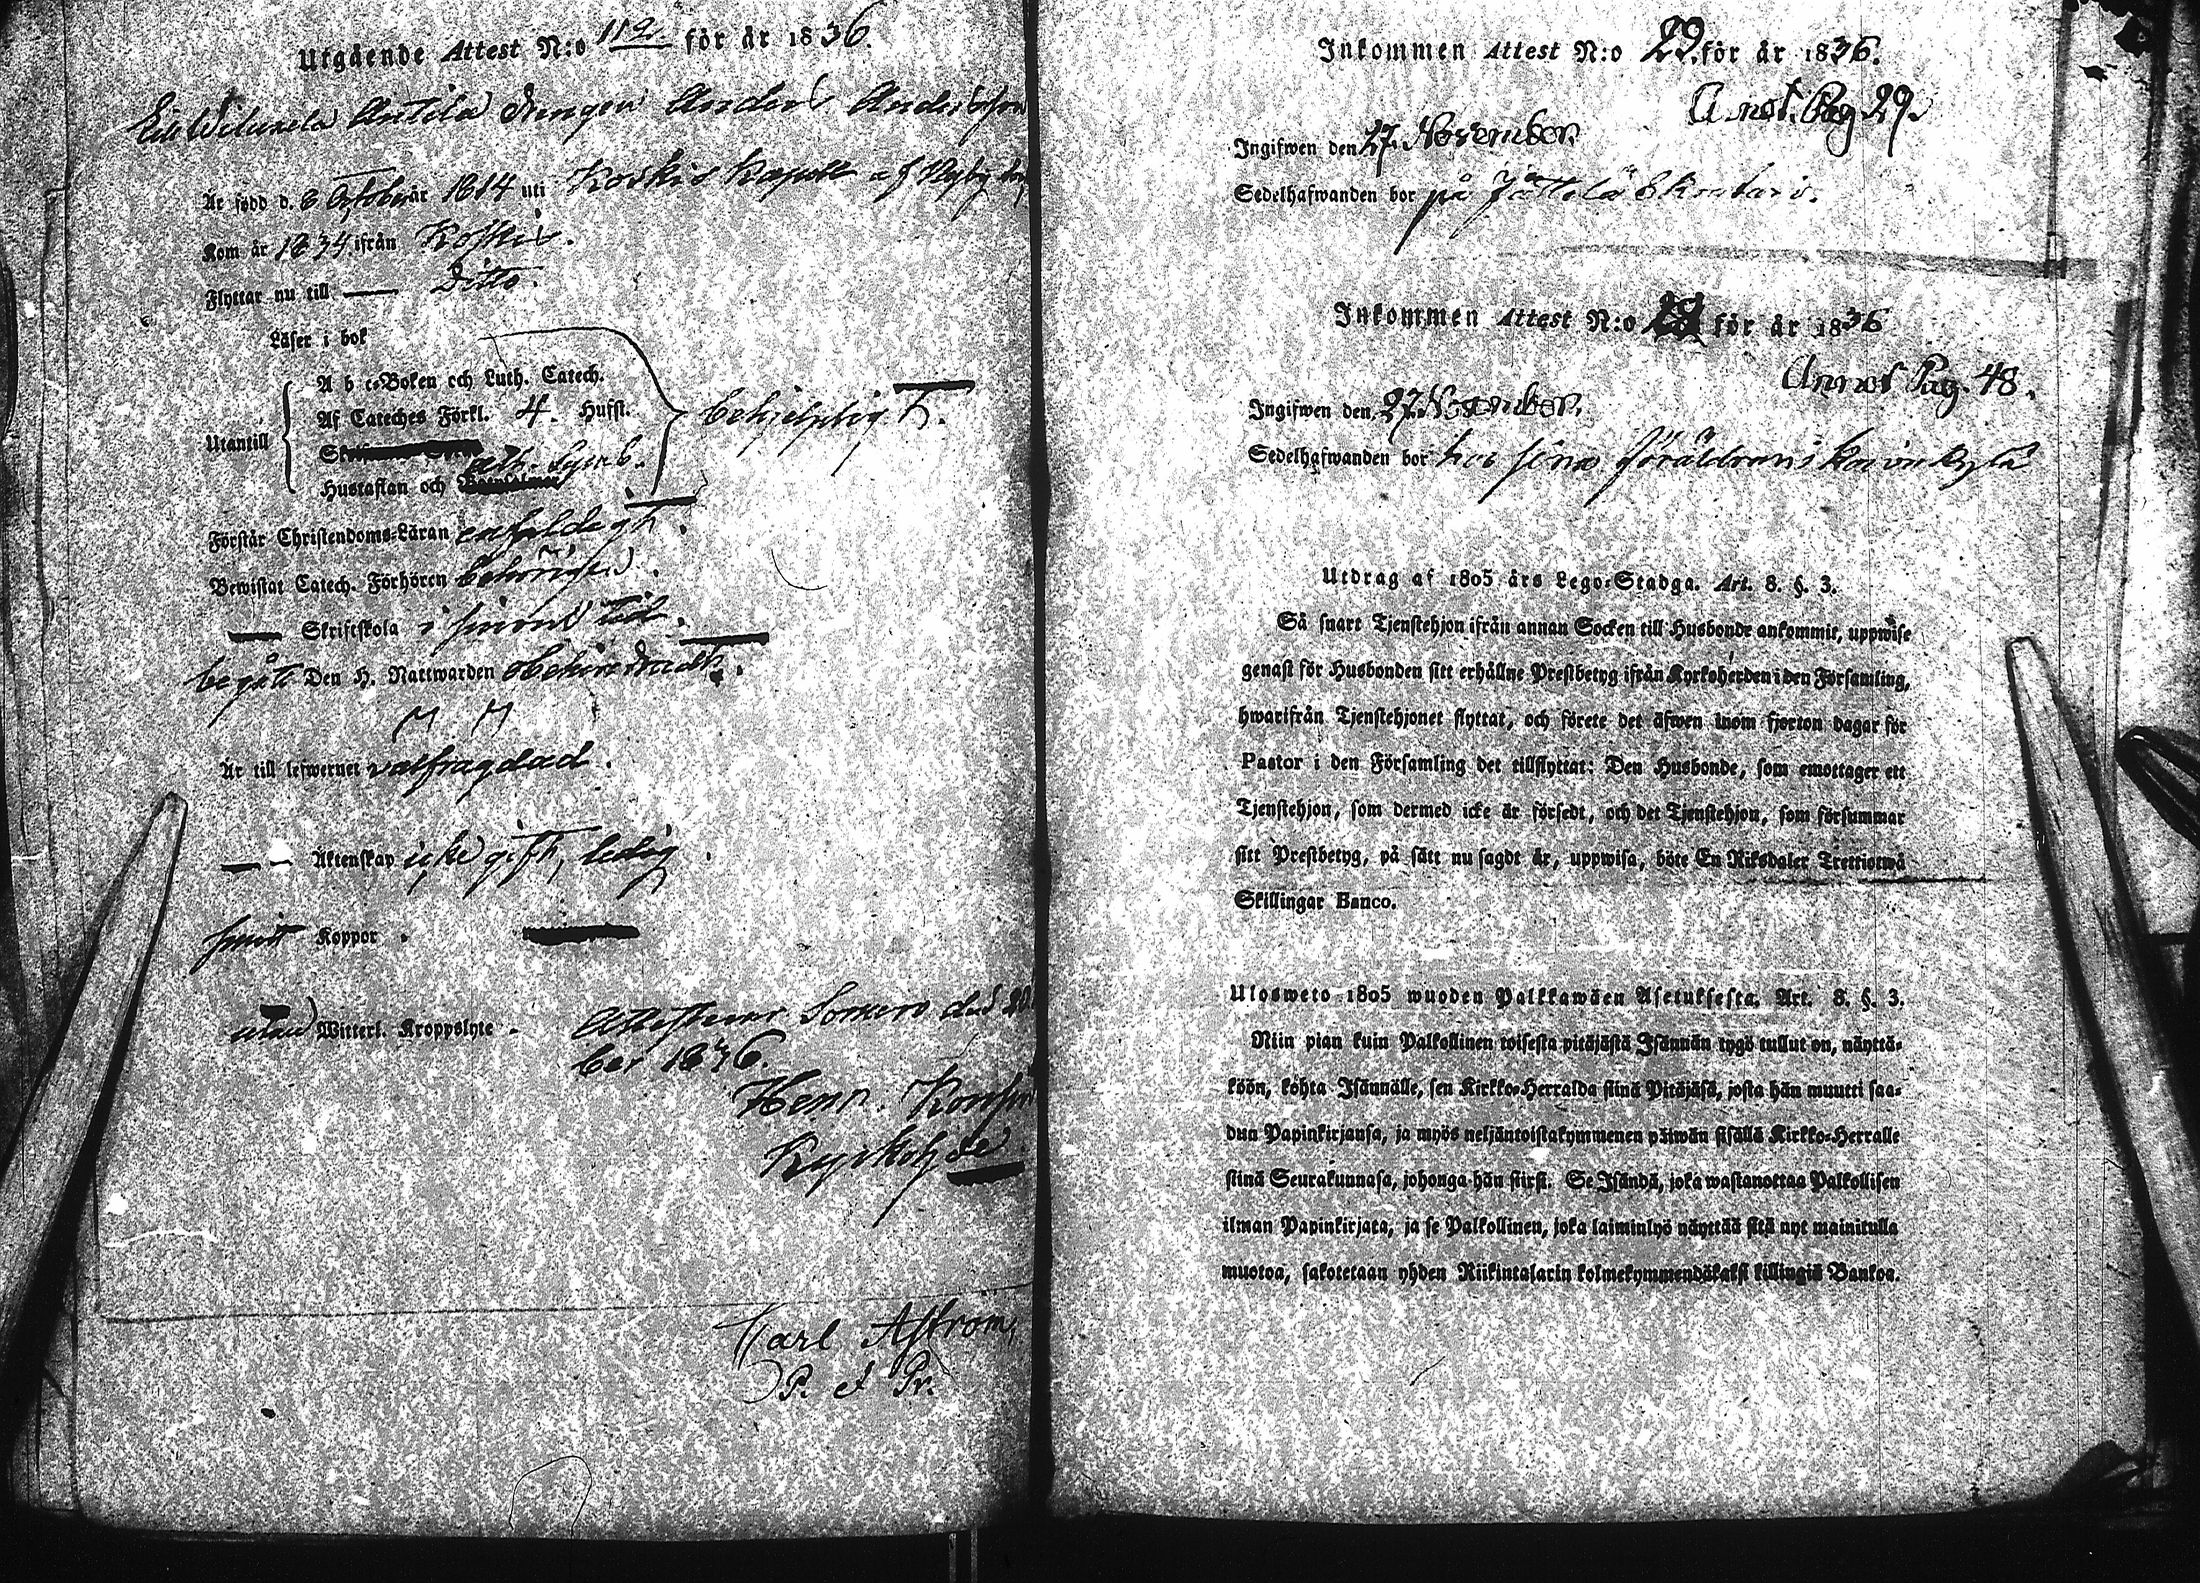 Utgående Attest N:o 112 för år 1836.
Antila Drengen Anders Andersson
Är född d. 8 October år 1814 uti Koskis Kapell af
Kom år 1834 ifrån Koskis.
Flyttar nu till — Ditto.
Läser i bok
A b c-Boken och Luth. Catech.
Af Cateches Förkl. 4. Hufst.
Utantill
Ath. Symb.
Hustaflan och
behjelpligt.
Förstår Christendoms-Läran enfaldigt.
Bewistat Catech. Förhören behörigen.
— Skriftskola i sinom tid.
begått Den H. Nattwarden obehindradt.
Är till lefwernet välfrägdad.
— Äktenskap icke gift, ledig.
haft Koppor.
utan Witterl. Kroppslyte.
Attesterar Somero den
ber 1836.
Henr.
Kyrkohde
Carl Aström,
P. et Pr.
Inkommen Attest N:o 29. för år 1836.
Annot. Pag 29.
Ingifwen den 27. November.
Sedelhafwanden bor på Jättelä
Inkommen Attest N:o för år 1836
Annot Pag. 48.
Ingifwen den 27. November.
Sedelhafwanden bor hos sina föräldrar i
Utdrag af 1805 års Lego-Stadga. Art. 8. §. 3.
Så snart Tjenstehjon ifrån annan Socken till Husbonde ankommit, uppwise
genast för Husbonden sitt erhållne Prestbetyg ifrån Kyrkoherden i den Församling,
hwarifrån Tjenstehjonet flyttat, och förete det äfwen inom fjorton dagar för
Pastor i den Församling det tillflyttat: Den Husbonde, som emottager ett
Tjenstehjon, som dermed icke är försedt, och det Tjenstehjon, som försummar
sitt Prestbetyg, på sätt nu sagdt är, uppwisa, böte En Riksdaler Trettiotwå
Skillingar Banco.
Ulosweto 1805 wuoden Palkkawäen Asetuksesta. Art. 8. §. 3.
Niin pian kuin Palkollinen toisesta pitäjästä Isännän tygö tullut on, näyttä-
köön, kohta Isännälle, sen Kirkko-Herralda siinä Pitäjäsä, josta hän muutti saa-
dun Papinkirjansa, ja myös neljäntoistakymmenen päiwän sisällä Kirkko-Herralle
siinä Seurakunnasa, johonga hän siirsi. Se Isändä, joka wastanottaa Palkollisen
ilman Papinkirjata, ja se Palkollinen, joka laiminlyö näyttää sitä nyt mainitulla
muotoa, sakotetaan yhden Riikintalarin kolmekymmendäkaksi killingiä Bankoa.